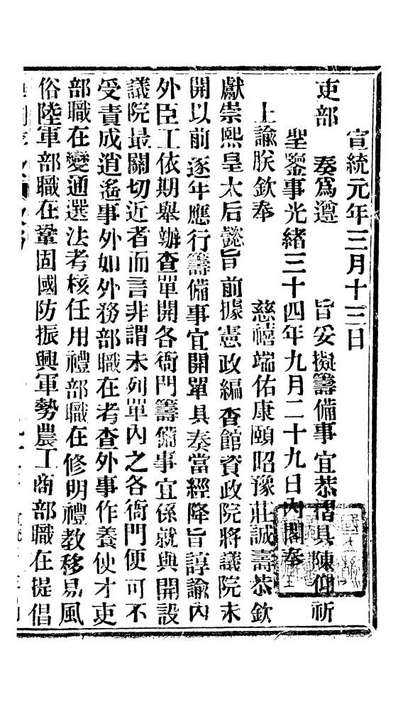 宣統元年三月十三日
吏部 奏爲遵 旨妥擬籌備事宜恭摺具陳仰祈
聖鑒事光緒三十四年九月二十九日內閣奉
上諭朕欽奉 慈禧端佑康頤昭豫莊誠壽恭欽
獻崇熙皇太后懿旨前據憲政編查館資政院將議院未
開以前逐年應行籌備事宜開單具奏當經降旨諄諭內
外臣工依期舉辦查單開各衙門籌備事宜係就與開設
議院最關切近者而言非謂未列單內之各衙門便可不
受責成逍遙事外如外務部職在考查外事作養使才吏
部職在變通選法考核任用禮部職在修明禮教移易風
俗陸軍部職在鞏固國防振興軍勢農工商部職在提倡